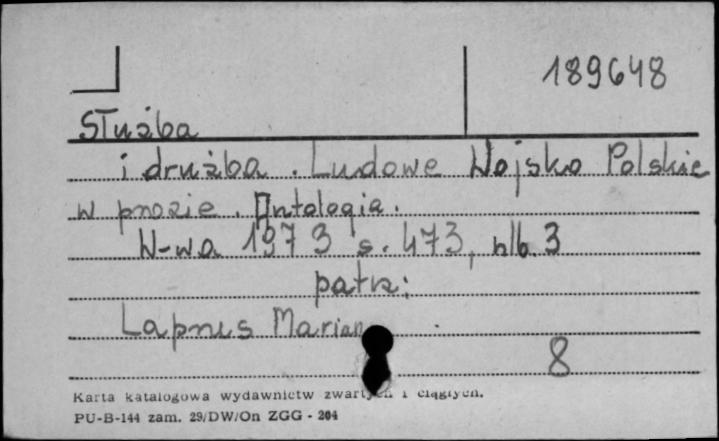 189648
Służba
i drużba. Ludowe Wojsko Polskie
w prozie. Antologia.
W-wa 1973 s. 473, nlb. 3
patrz:
Laprus Marian
8
Karta katalogowa wydawnictw zwartych i ciągłych.
PU-B-144 zam. 29/DW/On ZGG - 204